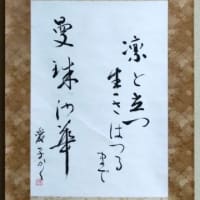 凛と立つ
生きはつる
まで
曼珠沙華